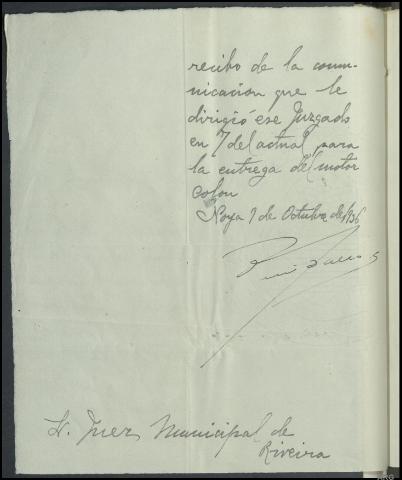 recibo de la comu-
nicacion que le
dirigió ése Juzgado
en 7 del actual para
la entrega del motor
colon
Noya 7 de Octubre de 1936
Sr. Juez Municipal de
Riveira